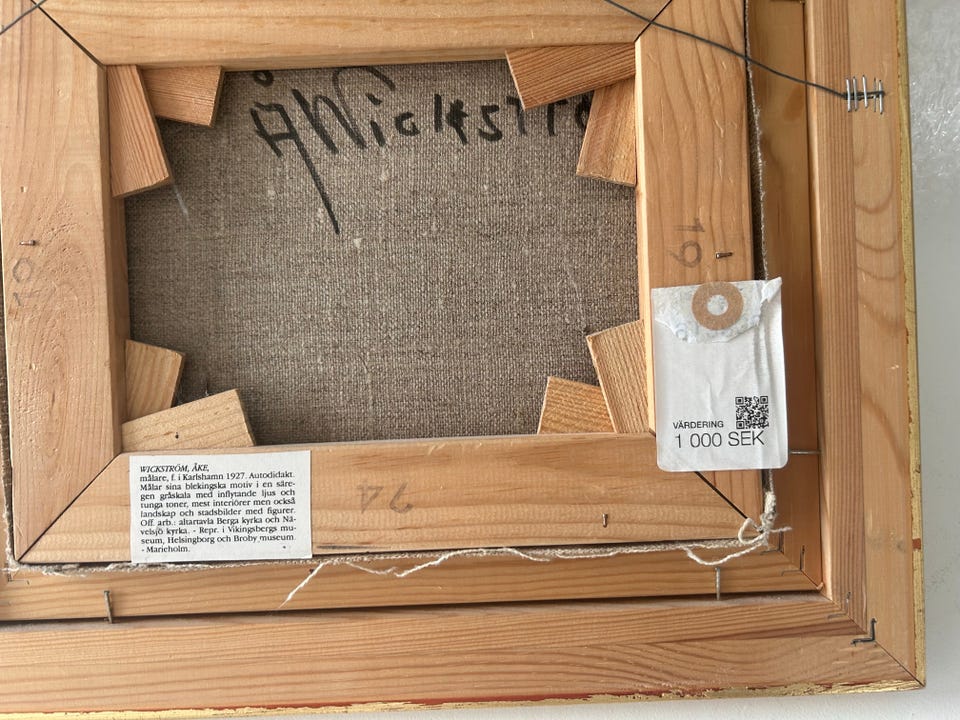 Å Wickström
19
19
VÄRDERING
1 000 SEK
WICKSTRÖM, ÅKE,
målare, f. i Karlshamn 1927. Autodidakt.
Målar sina blekingska motiv i en säre-
gen gråskala med inflytande ljus och
tunga toner, mest interiörer men också
landskap och stadsbilder med figurer.
Off. arb.: altartavla Berga kyrka och Nä-
velsjö kyrka. - Repr. i Vikingsbergs mu-
seum, Helsingborg och Broby museum.
- Marieholm.
24